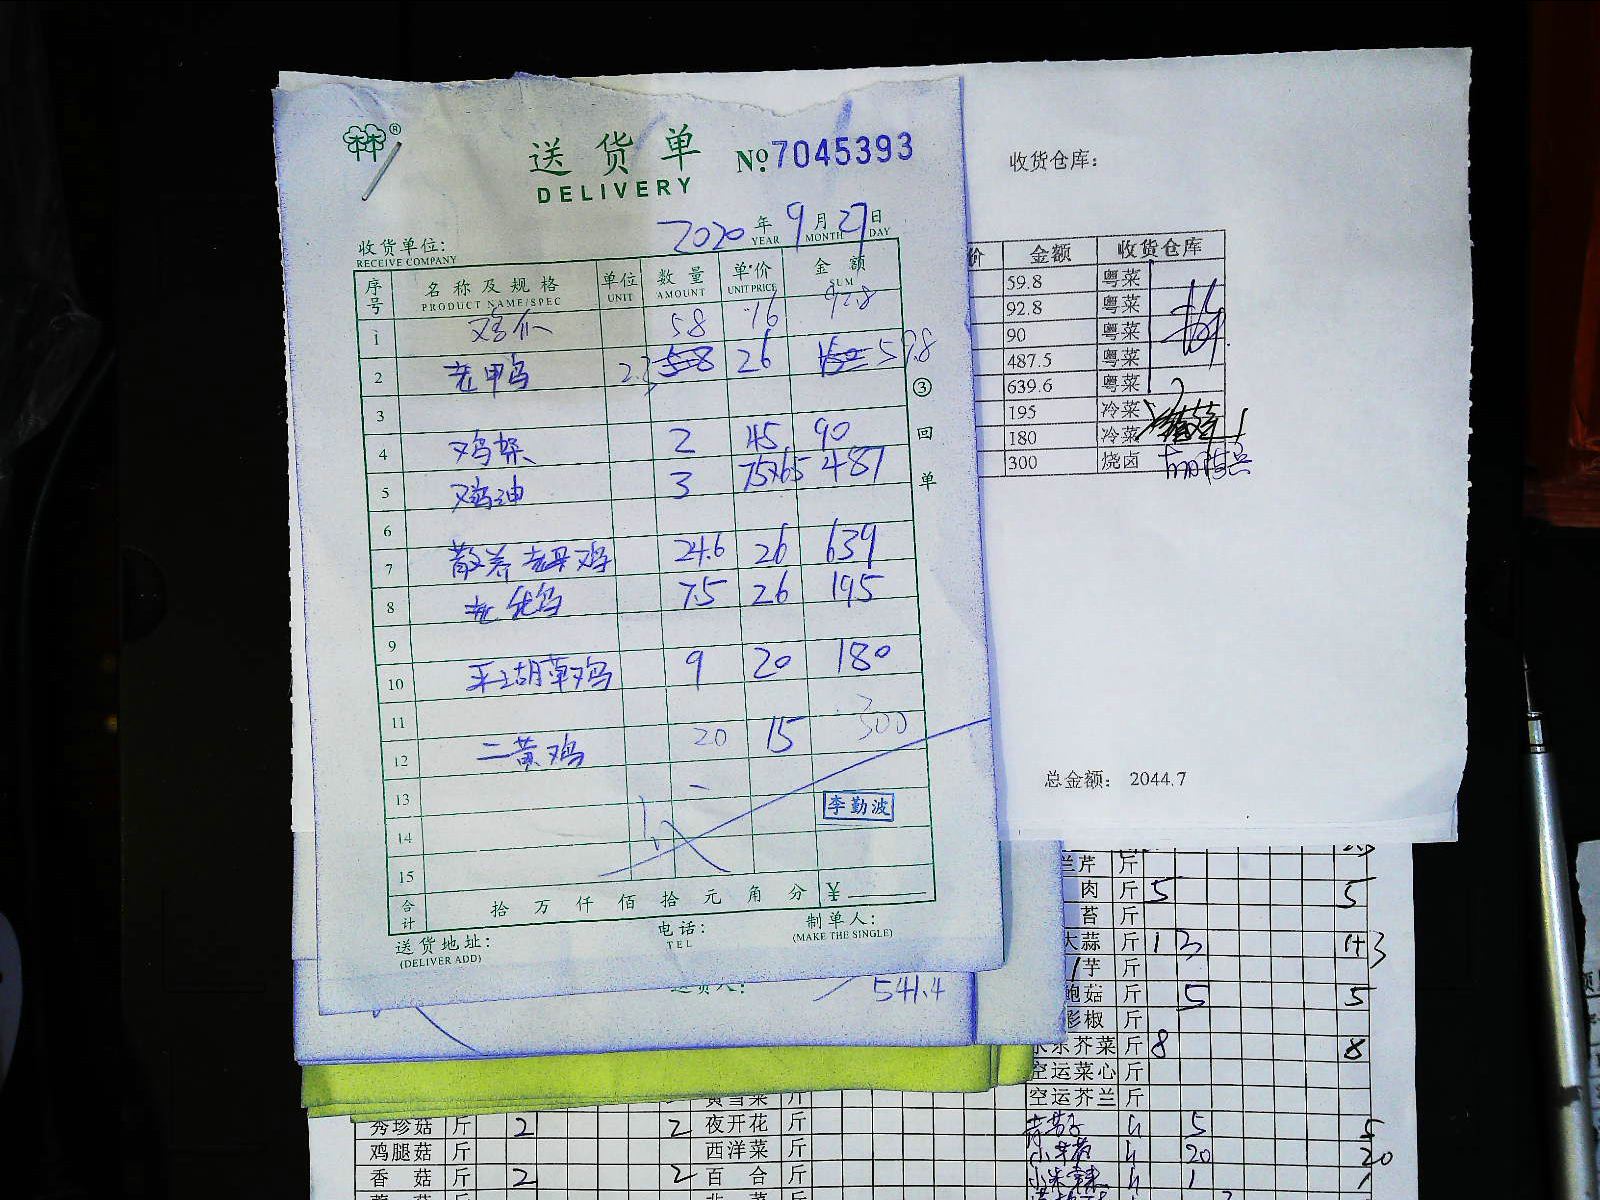 送货单
DELIVERY
№7045393
2020年9月27日
YEAR MONTH DAY
收货单位:
RECEIVE COMPANY
序号 名称及规格 单位 数量 单价 金额
PRODUCT NAME/SPEC UNIT AMOUNT UNIT PRICE SUM
1 58 16 92.8
2 老甲鸟 26 59.8
3
4 鸡架 2 45 90
5 鸡油 3 75×65 487
6
7 散养老母鸡 24.6 26 639
8 7.5 26 195
9
10 平湖草鸡 9 20 180
11
12 二黄鸡 20 15 300
13
14
15
李勤波
合计 拾万仟佰拾元角分 ¥
送货地址:
(DELIVER ADD)
电话:
TEL
制单人:
(MAKE THE SINGLE)
③回单
541.4
收货仓库:
价 金额 收货仓库
59.8 粤菜
92.8 粤菜
90 粤菜
487.5 粤菜
639.6 粤菜
195 冷菜
180 冷菜
300 烧卤
总金额: 2044.7
兰芹 斤
肉 斤 5 5
苔 斤
大蒜 斤 1 3 1+3
芋 斤
鲍菇 斤 5 5
彩椒 斤
芥菜 斤 8 8
空运菜心 斤
空运芥兰 斤
5 5
20 20
小米辣 1 1
秀珍菇 斤 2 2 夜开花 斤
鸡腿菇 斤 西洋菜 斤
香菇 斤 2 2 百合 斤